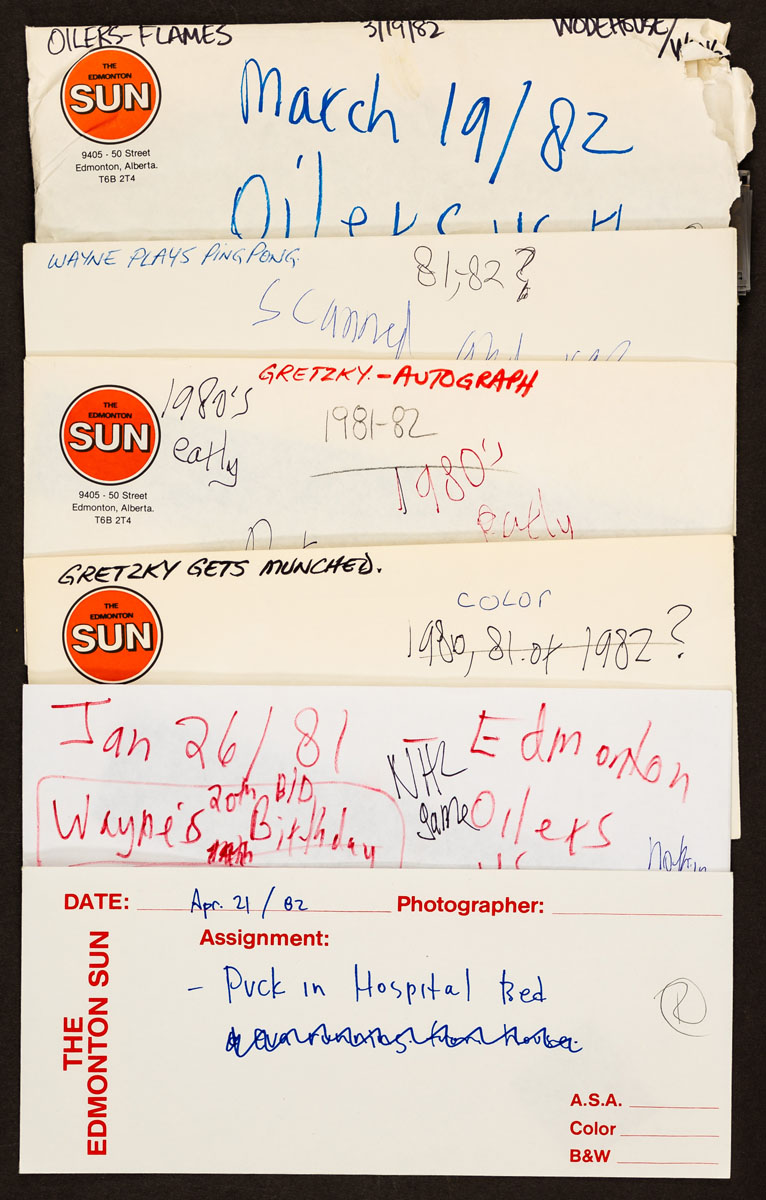 OILERS-FLAMES 3/19/82 WODEHOUSE/
THE
EDMONTON
SUN
9405 - 50 Street
Edmonton, Alberta.
T6B 2T4
March 19/82
Oilers
WAYNE PLAYS PING PONG.
81,-82?
Scanned and
GRETZKY.-AUTOGRAPH
THE
EDMONTON
SUN
9405 - 50 Street
Edmonton, Alberta.
T6B 2T4
1980's
early
1981-82
1980's
early
GRETZKY GETS MUNCHED.
THE
EDMONTON
SUN
COLOR
1980, 81.or 1982?
Jan 26/81 - Edmonton
Oilers
vs
NHL
game
20th B/D
Wayne's Birthday
DATE: Apr. 21/82 Photographer:
Assignment:
THE
EDMONTON SUN
- Puck in Hospital Bed
R
A.S.A.
Color
B&W